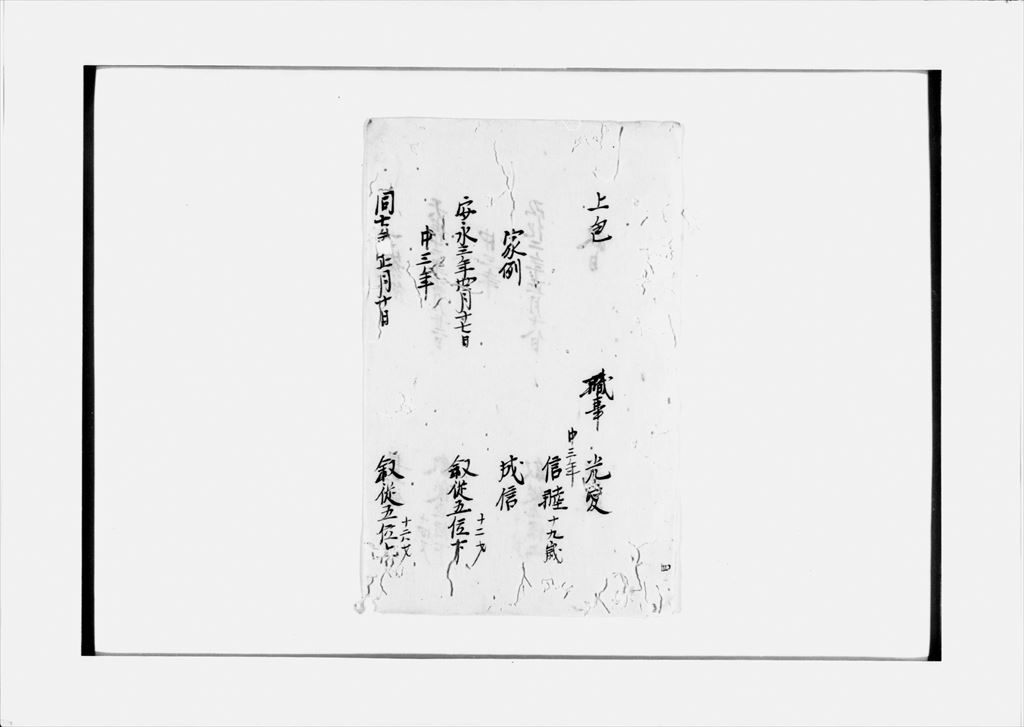 上包
職事 光愛
中三年
信睦 十九歳
家例 成信
安永三年四月十七日 叙従五位下 十二才
中三年
同七年正月十日 叙従五位上 十六才
四